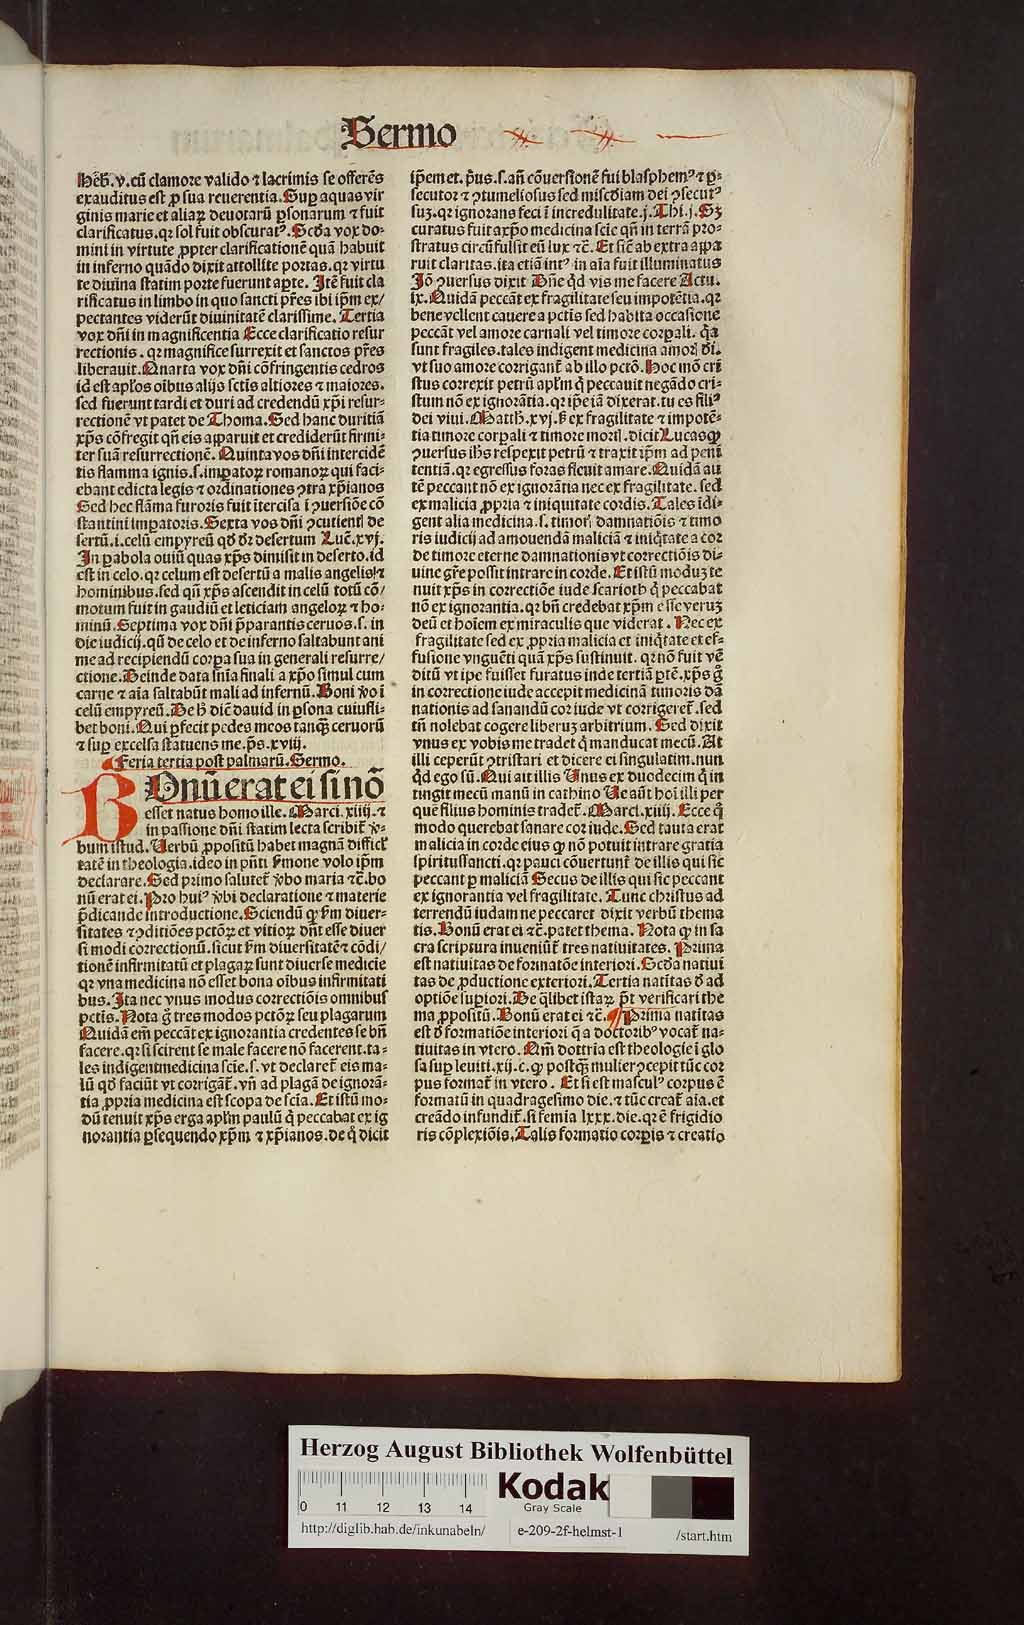 Sermo
Heb̄.v.cū clamore valido ⁊ lacrimis se offerēs
exauditus est ꝓ sua reuerentia.Suꝑ aquas vir
ginis marie et aliaꝝ deuotarū ꝑsonarum ⁊ fuit
clarificatus.qꝛ sol fuit obscuratꝰ.Scd̄a vox do⸗
mini in virtute ꝓpter clarificationē quā habuit
in inferno quādo dixit attollite portas.qꝛ virtu
te diuina statim porte fuerunt aꝑte. Itē fuit cla
rificatus in limbo in quo sancti pr̄es ibi ip̄m ex/
pectantes viderūt diuinitatē clarissime. Tertia
vox dn̄i in magnificentia Ecce clarificatio resur
rectionis.qꝛ magnifice surrexit et sanctos pr̄es
liberauit.Quarta vox dn̄i cōfringentis cedros
id est apl̄os oībus alijs sctīs altiores ⁊ maiores.
sed fuerunt tardi et duri ad credendū xp̄i resur⸗
rectionē vt patet de Thoma.Sed hanc duritiā
xp̄s cōfregit qn̄ eis apparuit et crediderūt firmi⸗
ter suā resurrectionē.Quinta vox dn̄i intercidē
tis flamma ignis.s.impatoꝝ romanoꝝ qui faci⸗
ebant edicta legis ⁊ ordinationes ꝯtra xp̄ianos
Sed hec flāma furoris fuit itercisa ī ꝯuersiōe cō
stantini Imꝑatoris.Sexta vos dn̄i ꝯcutientꝭ de
sertū.i.celū empyreū qd̄ dꝛ desertum Luc̄.xvj.
In ꝑabola ouiū quas xp̄s dimisit in deserto.id
est in celo.qꝛ celum est desertū a malis angelis ⁊
hominibus.sed qn̄ xp̄s ascendit in celū totū cō/
motum fuit in gaudiū et leticiam angeloꝝ ⁊ ho⸗
minū.Septima vox dn̄i p̄parantis ceruos.s.in
die iudicij.qn̄ de celo et de inferno saltabunt ani
me ad recipiendū corꝑa sua in generali resurre/
ctione.Deinde data sn̄ia finali a xp̄o simul cum
carne ⁊ aīa saltabūt mali ad infernū.Boni v̄o ī
celū empyreū.De h̄ dic̄ dauid in ꝑsona cuiusli⸗
bet boni.Qui ꝑfecit pedes meos tanqᷓ ceruorū
⁊ suꝑ excelsa statuens me.ps̄.xviij.
Feria tertia post palmarū.Sermo.
BOnū erat ei si nō
esset natus homo ille.Marci.xiiij.⁊
in passione dn̄i statim lecta scribit᷑ v̄⸗
bum istud.Uerbū ꝓpositū habet magnā difficl̄
tatē in theologia.ideo in pn̄ti sermone volo ip̄m
declarare.Sed primo salutet᷑ v̄bo maria ⁊c̄.bo
nū erat ei.Pro huiꝰ v̄bi declaratione ⁊ materie
p̄dicande introductione.Sciendū ꝙ ẜm diuer⸗
sitates ⁊ ꝯditiōes pctōꝝ et vitioꝝ dn̄t esse diuer
si modi correctionū.sicut ẜm diuersitatē ⁊ cōdi/
tionē infirmitatū et plagaꝝ sunt diuerse medicie
qꝛ vna medicina nō esset bona oībus infirmitati
bus.Ita nec vnus modus correctiōis omnibus
pctīs.Nota g̊ tres modos pctōꝝ seu plagarum
Quidā em̄ peccāt ex ignorantia credentes se bn̄
facere.qꝛ si scirent se male facere nō facerent.ta⸗
les indigent medicina scie.s.vt declaret᷑ eis ma⸗
lū qd̄ faciūt vt corrigāt᷑.vn̄ ad plagā de ignorā⸗
tia ꝓpria medicina est scopa de scīa.Et istū mo⸗
dū tenuit xp̄s erga apl̄m paulū q̇ peccabat ex ig
norantia ꝑsequendo xp̄m ⁊ xp̄ianos.de q̊ dicit
ip̄emet.p̄us.s.an̄ cōuersionē fui blasphemꝰ ⁊ ꝑ⸗
secutor ⁊ ꝯtumeliosus sed miscd̄iam dei ꝯsecutꝰ
suꝫ.qꝛ ignorans feci ī incredulitate.j.Thi.j.Sꝫ
curatus fuit a xp̄o medicina scie qn̄ in terrā pro⸗
stratus circūfulsit eū lux ⁊c̄.Et sic̄ ab extra appa
ruit claritas.ita etiā intꝰ in aīa fuit illuminatus
Iō ꝯuersus dixit Dn̄e qd̄ vis me facere Actu.
ix.Quidā peccāt ex fragilitate seu impotētia.qꝛ
bene vellent cauere a pctīs sed habita occasione
peccāt vel amore carnali vel timore corꝑali.qꝛ̄a
sunt fragiles.tales indigent medicina amorꝭ dī.
vt suo amore corrigant᷑ ab illo pctō.Hoc mō cri
stus correxit petrū apl̄m q̇ peccauit negādo cri⸗
stum nō ex ignorātia.qꝛ ip̄e iā dixerat.tu es filiꝰ
dei viui.Matth.xvj.ß ex fragilitate ⁊ impotē⸗
tia timore corꝑali ⁊ timore mortꝭ.dicit Lucas ꝙ
ꝯuersus ih̄s respexit petrū ⁊ traxit ip̄m ad peni
tentiā.qꝛ egressus foras fleuit amare.Quidā au
tē peccant nō ex ignorātia nec ex fragilitate.sed
ex malicia ꝓpria ⁊ iniquitate cordis.Tales īdi⸗
gent alia medicina.s.timorꝭ damnatiōis ⁊ timo
ris iudicij ad amouendā maliciā ⁊ iniq̇tate a cor
de timore eterne damnationis vt correctiōis di⸗
uine gr̄e possit intrare in corde.Et istū moduꝫ te
nuit xp̄s in correctiōe iude scarioth q̇ peccabat
nō ex ignorantia.qꝛ bn̄ credebat xp̄m esse veruꝫ
deū et hoīem ex miraculis que viderat.Nec ex
fragilitate sed ex ꝓpria malicia et iniq̇tate et ef⸗
fusione vnguēti quā xp̄s sustinuit.qꝛ nō fuit vē
ditū vt ipe fuisset furatus inde tertiā ꝑtē.xp̄s g̊
in correctione iude accepit medicinā timoris dā
nationis ad sanandū cor iude vt corrigeret᷑.sed
tn̄ nolebat cogere liberuꝫ arbitrium.Sed dixit
vnus ex vobis me tradet q̇ manducat mecū.At
illi ceperūt ꝯtristari et dicere ei singulatim.nun
qd̄ ego sū.Qui ait illis Unus ex duodecim q̇ in
tingit mecū manū in cathino Ue aūt hoī illi per
quē filius hominis tradet᷑.Marci.xiiij.Ecce q̊
modo querebat sanare cor iude.Sed tanta erat
malicia in corde eius ꝙ nō potuit intrare gratia
spiritussancti.qꝛ pauci cōuertunt᷑ de illis qui sic
peccant ꝑ maliciā Secus de illis qui sic peccant
ex ignorantia vel fragilitate.Tunc christus ad
terrendū iudam ne peccaret dixit verbū thema
tis.Bonū erat ei ⁊c̄.patet thema.Nota ꝙ in sa
cra scriptura inueniūt᷑ tres natiuitates.Prima
est natiuitas de formatōe interiori.Scd̄a natiui
tas de ꝓductione exteriori.Tertia natītas d̄ ad
optiōe suꝑiori.De q̄libet istaꝝ pōt verificari the
ma ꝓpositū.Bonū erat ei ⁊c̄. Prima natītas
est d̄ formatiōe interiori q̄ a doctoribꝰ vocat᷑ na⸗
tiuitas in vtero.Nam̄ doctria est theologie ī glo
sa suꝑ leuiti.xij.c.ꝙ postqᷓ mulier ꝯcepit tūc cor
pus format᷑ in vtero.Et si est masculꝰ corpus ē
formatū in quadragesimo die.⁊ tūc creat᷑ aīa.et
creādo infundit᷑.si femīa lxxx.die.qꝛ ē frigidio
ris cōplexiōis.Talis formatio corꝑis ⁊ creatio
Herzog August Bibliothek Wolfenbüttel
0 11 12 13 14
Kodak
Gray Scale
http://diglib.hab.de/inkunabeln/ e-209-2f-helmst-1 /start.htm